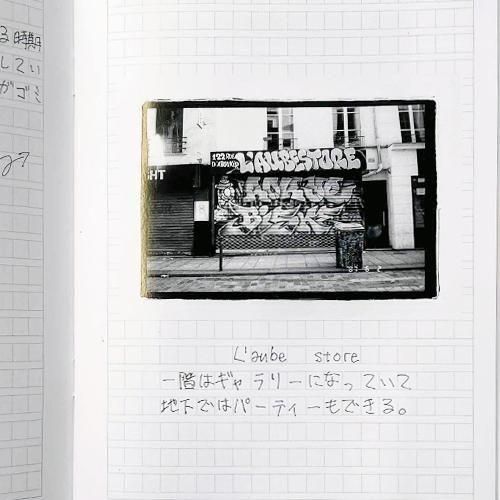 る時期
してい
がゴミ
122 RUE
L'AUBE STORE
HT
L'aube store
一階はギャラリーになっていて
地下ではパーティーもできる。